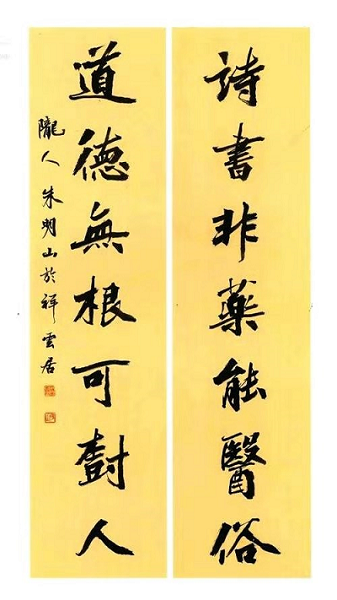 詩書非藥能醫俗
道德無根可樹人
隴人朱明山於祥雲居